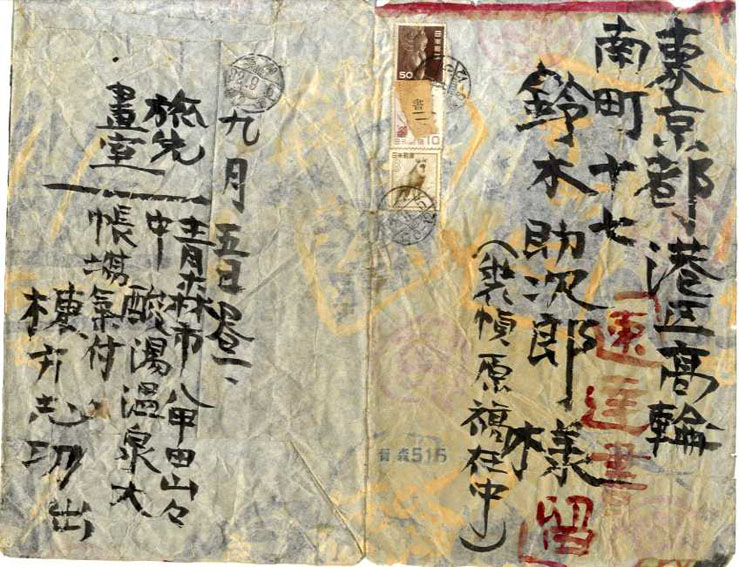 東京都港区高輪
南町十七
鈴木助次郎様
(裝幀原稿在中)
速達書留
日本郵便
50
10
日本郵便
515
九月五日昼、
旅先
畫室
青森市八甲田山々
中酸湯温泉大
帳場氣付
棟方志功出